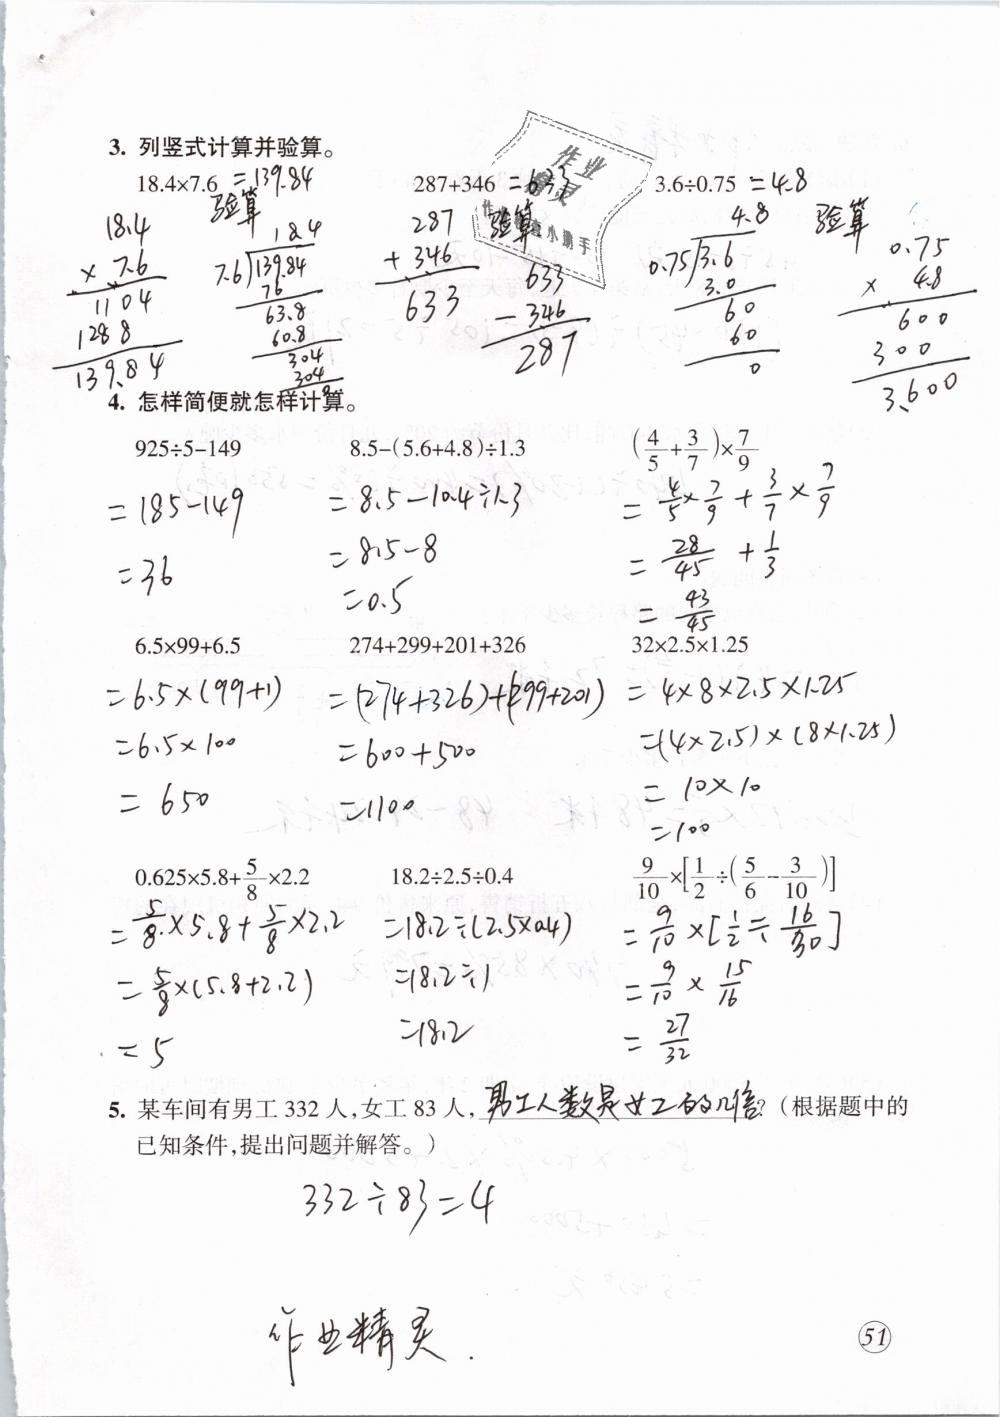 3. 列竖式计算并验算。
18.4×7.6 =139.84 287+346 =633 3.6÷0.75 =4.8
验算 验算 验算
18.4
× 7.6
1104
1288
139.84
18.4
7.6 139.84
76
63.8
60.8
304
304
0
287
+ 346
633
633
- 346
287
4.8
0.75 3.6
3.0
60
60
0
0.75
× 4.8
600
300
3.600
4. 怎样简便就怎样计算。
925÷5-149 8.5-(5.6+4.8)÷1.3 (4/5+3/7)×7/9
=185-149 =8.5-10.4÷1.3 =4/5×7/9+3/7×7/9
=36 =8.5-8 =28/45+1/3
=0.5 =43/45
6.5×99+6.5 274+299+201+326 32×2.5×1.25
=6.5×(99+1) =(274+326)+(299+201) =4×8×2.5×1.25
=6.5×100 =600+500 =(4×2.5)×(8×1.25)
=650 =1100 =10×10
=100
0.625×5.8+5/8×2.2 18.2÷2.5÷0.4 9/10×[1/2÷(5/6-3/10)]
=5/8×5.8+5/8×2.2 =18.2÷(2.5×0.4) =9/10×[1/2÷16/30]
=5/8×(5.8+2.2) =18.2÷1 =9/10×15/16
=5 =18.2 =27/32
5. 某车间有男工 332 人,女工 83 人,男工人数是女工的几倍?(根据题中的
已知条件,提出问题并解答。)
332÷83=4
作业精灵.
51